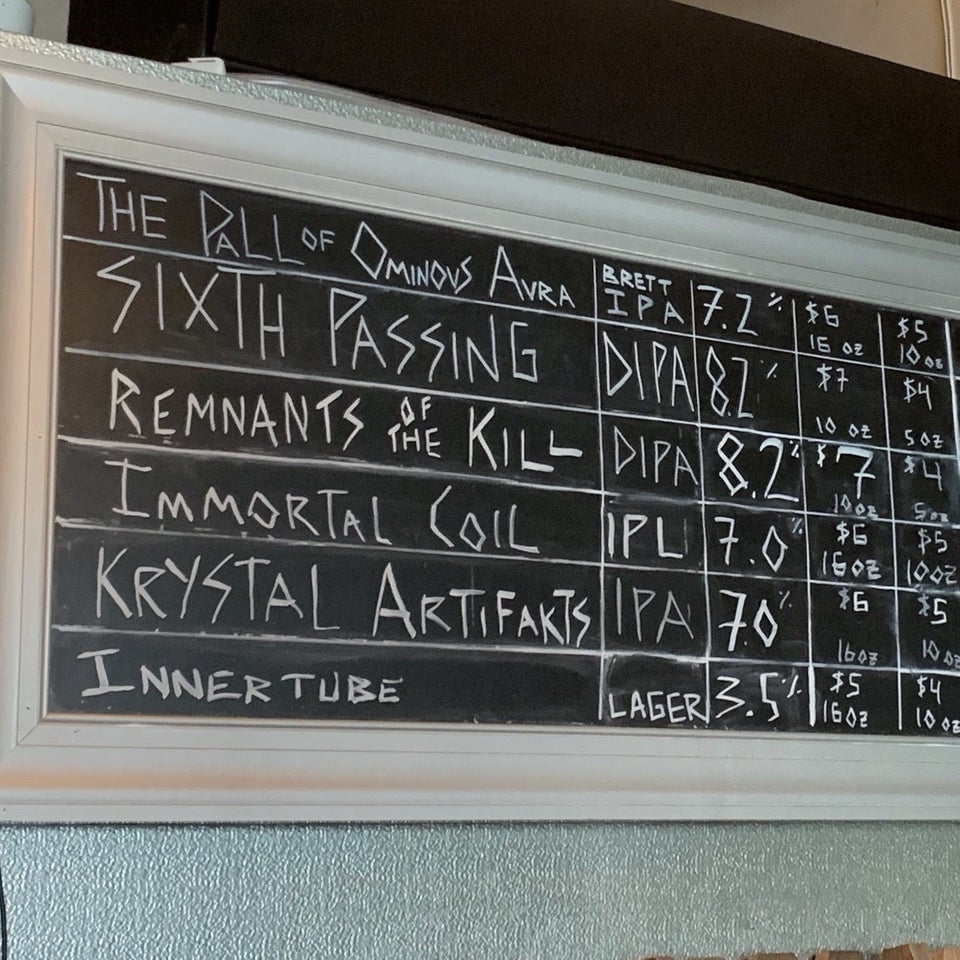 THE PALL OF OMINOUS AURA BRETT IPA 7.2% $6 16 OZ $5 10 OZ
SIXTH PASSING DIPA 8.2% $7 10 OZ $4 5 OZ
REMNANTS OF THE KILL DIPA 8.2% $7 10 OZ $4 5 OZ
IMMORTAL COIL IPL 7.0% $6 16 OZ $5 10 OZ
KRYSTAL ARTIFAKTS IPA 7.0% $6 16 OZ $5 10 OZ
INNER TUBE LAGER 3.5% $5 16 OZ $4 10 OZ